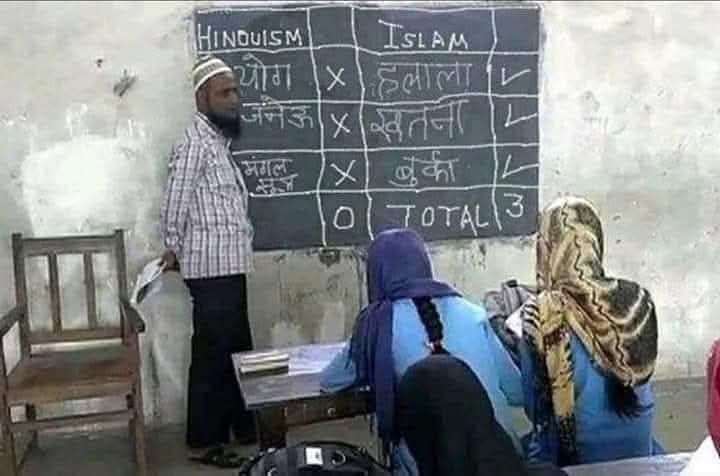 HINDUISM ISLAM
योग × हलाला ✓
जनेऊ × खतना ✓
मंगल
सूत्र × बुर्का ✓
0 TOTAL 3